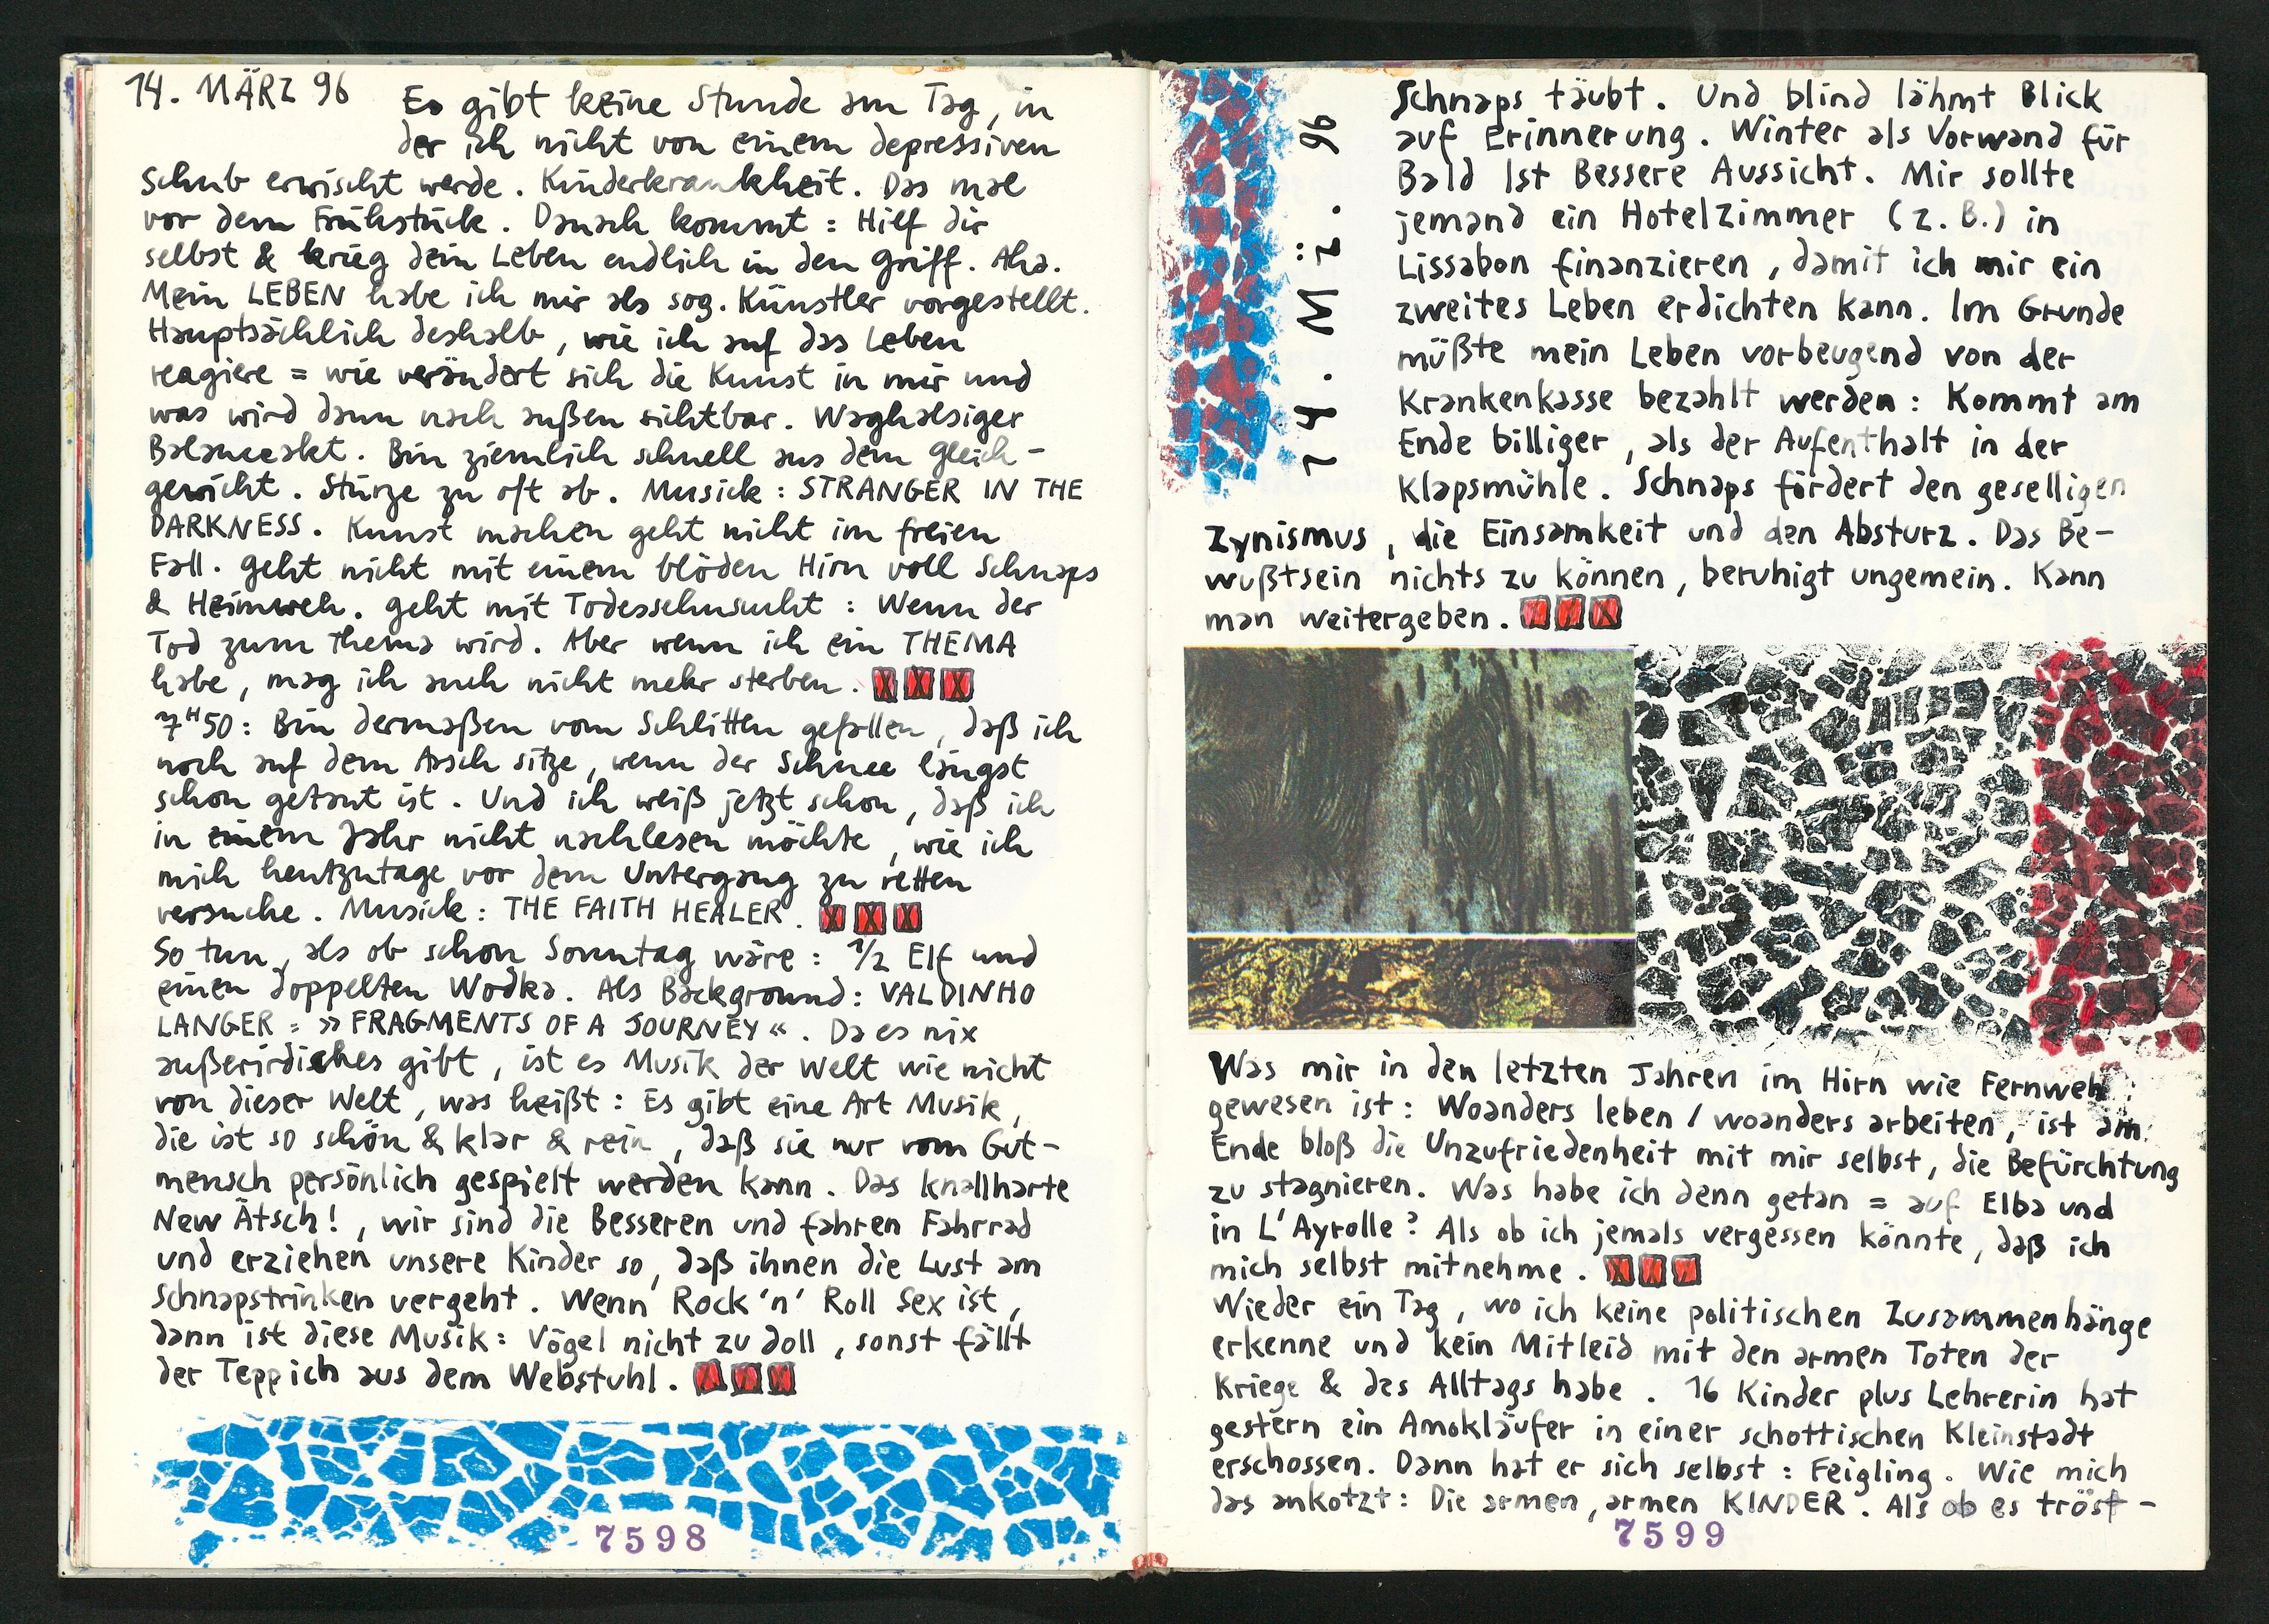 14. MÄRZ 96
Es gibt keine Stunde am Tag, in
der ich nicht von einem depressiven
Schub erwischt werde. Kinderkrankheit. Das mal
vor dem Frühstück. Danach kommt: Hilf dir
selbst & krieg dein Leben endlich in den Griff. Aha.
Mein LEBEN habe ich mir als sog. Künstler vorgestellt.
Hauptsächlich deshalb, wie ich auf das Leben
reagiere = wie verändert sich die Kunst in mir und
was wird dann nach außen sichtbar. Waghalsiger
Balanceakt. Bin ziemlich schnell aus dem Gleich-
gewicht. Stürze zu oft ab. Musick: STRANGER IN THE
DARKNESS. Kunst machen geht nicht im freien
Fall. Geht nicht mit einem blöden Hirn voll Schnaps
& Heimweh. Geht mit Todessehnsucht: Wenn der
Tod zum Thema wird. Aber wenn ich ein THEMA
habe, mag ich auch nicht mehr sterben. XXX
7H50: Bin dermaßen vom Schlitten gefallen, daß ich
noch auf dem Arsch sitze, wenn der Schnee längst
schon getaut ist. Und ich weiß jetzt schon, daß ich
in einem Jahr nicht nachlesen möchte, wie ich
mich heutzutage vor dem Untergang zu retten
versuche. Musick: THE FAITH HEALER. XXX
So tun, als ob schon Sonntag wäre: 1/2 Elf und
einen doppelten Wodka. Als Background: VALDINHO
LANGER = »FRAGMENTS OF A JOURNEY«. Da es nix
außerirdisches gibt, ist es Musik der Welt wie nicht
von dieser Welt, was heißt: Es gibt eine Art Musik,
die ist so schön & klar & rein, daß sie nur vom Gut-
mensch persönlich gespielt werden kann. Das knallharte
New Ätsch!, wir sind die Besseren und fahren Fahrrad
und erziehen unsere Kinder so, daß ihnen die Lust am
Schnapstrinken vergeht. Wenn Rock'n'Roll Sex ist,
dann ist diese Musik: Vögel nicht zu doll, sonst fällt
der Teppich aus dem Webstuhl. XXX
7598
14. Mäz. 96
Schnaps täubt. Und blind lähmt Blick
auf Erinnerung. Winter als Vorwand für
Bald Ist Bessere Aussicht. Mir sollte
jemand ein Hotelzimmer (z.B.) in
Lissabon finanzieren, damit ich mir ein
zweites Leben erdichten kann. Im Grunde
müßte mein Leben vorbeugend von der
Krankenkasse bezahlt werden: Kommt am
Ende billiger, als der Aufenthalt in der
Klapsmühle. Schnaps fördert den geselligen
Zynismus, die Einsamkeit und den Absturz. Das Be-
wußtsein nichts zu können, beruhigt ungemein. Kann
man weitergeben. XXX
Was mir in den letzten Jahren im Hirn wie Fernweh
gewesen ist: Woanders leben / woanders arbeiten, ist am
Ende bloß die Unzufriedenheit mit mir selbst, die Befürchtung
zu stagnieren. Was habe ich denn getan = auf Elba und
in L'Ayrolle? Als ob ich jemals vergessen könnte, daß ich
mich selbst mitnehme. XXX
Wieder ein Tag, wo ich keine politischen Zusammenhänge
erkenne und kein Mitleid mit den armen Toten der
Kriege & des Alltags habe. 16 Kinder plus Lehrerin hat
gestern ein Amokläufer in einer schottischen Kleinstadt
erschossen. Dann hat er sich selbst: Feigling. Wie mich
das ankotzt: Die armen, armen KINDER. Als ob es tröst-
7599